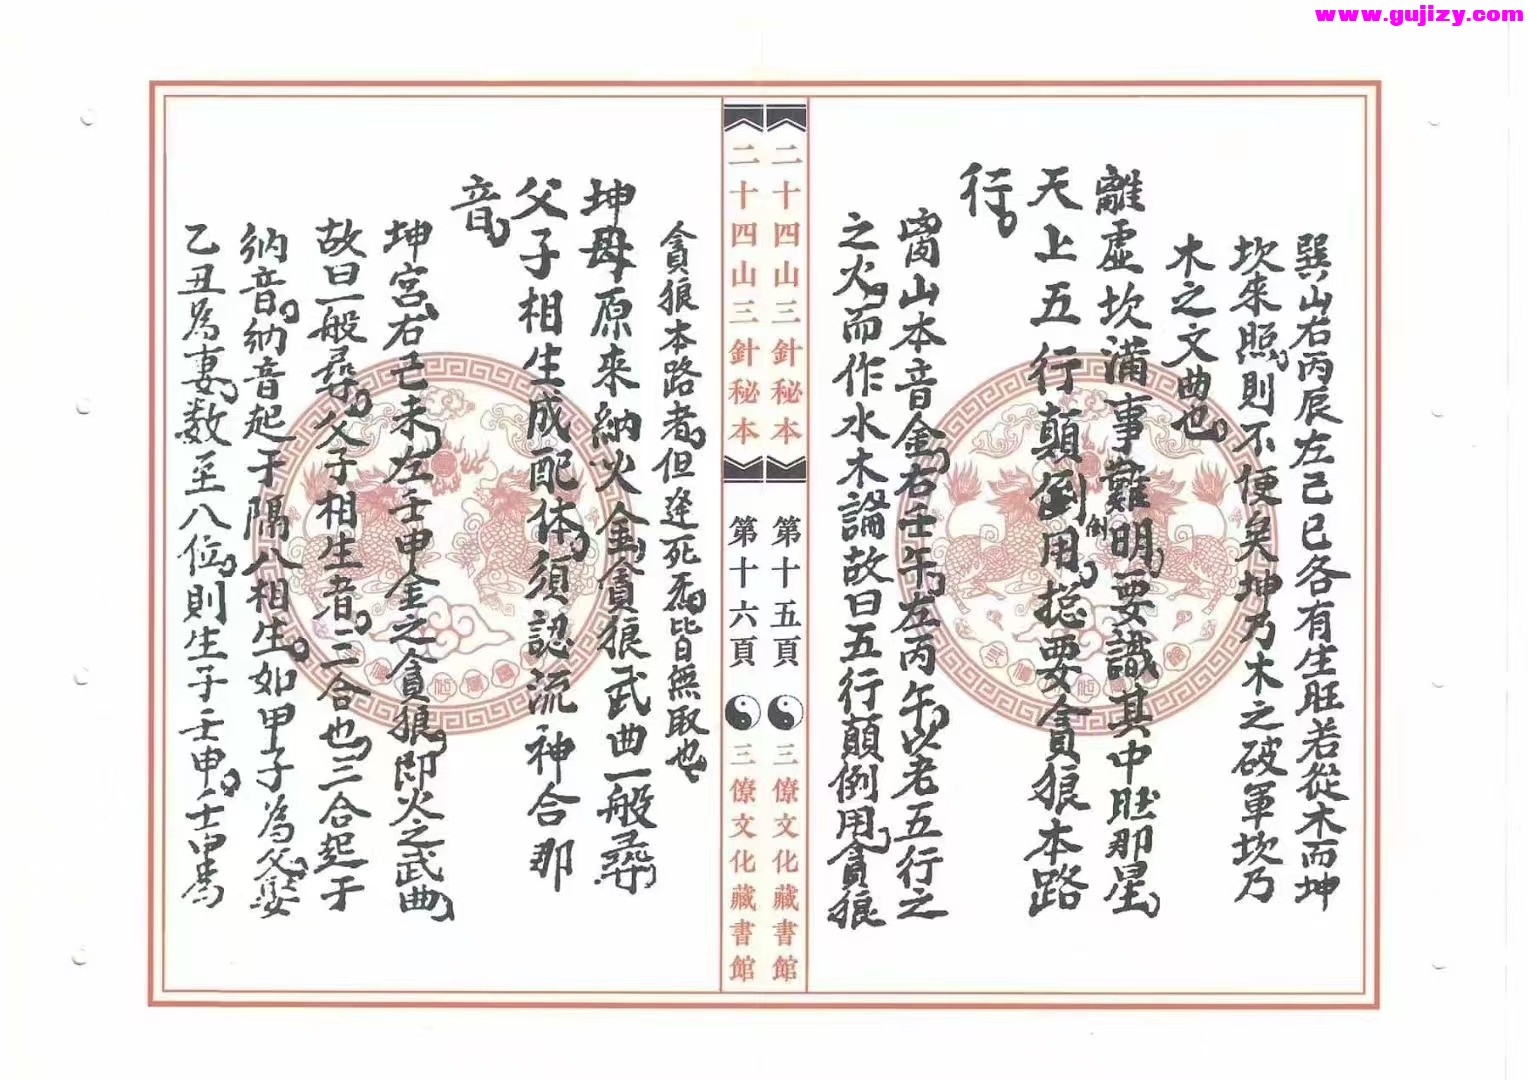 www.gujizy.com
巽山右丙辰左己巳各有生旺若從木而坤
坎来照則不便矣坤乃木之破軍坎乃
木之文曲也
離虛坎滿事難明要識其中胜那星
天上五行顛倒用捴要貪狼本路
倒
行
山本音金右壬午左丙午以老五行之
之火而作水木論故曰五行顛倒用貪狼
二十四山三針秘本
第十五頁
三僚文化藏書館
二十四山三針秘本
第十六頁
三僚文化藏書館
貪狼本路者但逢死病皆無取也
坤母原来納火金貪狼武曲一般尋
父子相生成配体須認流神合那
音
坤宮右己未左壬申金之貪狼即火之武曲
故曰一般尋父子相生者三合也三合起于
納音納音起于隔八相生如甲子為父娶
乙丑為妻数至八位則生子壬申壬申為